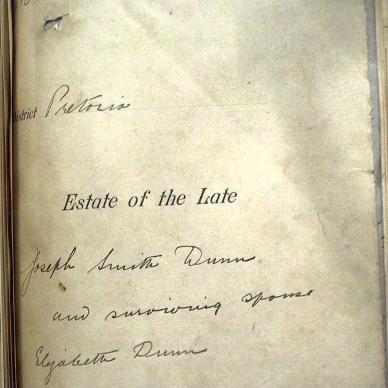 District Pretoria
Estate of the Late
Joseph Smith Dunn
and surviving spouse
Elizabeth Dunn